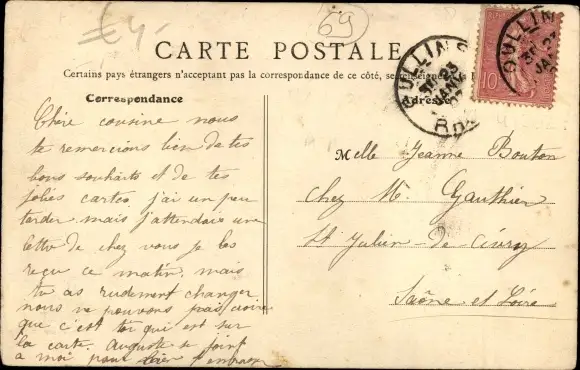 69
CARTE POSTALE
Certains pays étrangers n'acceptant pas la correspondance de ce côté, se renseigner
Correspondance
Adresse
OULLINS
31
JANV
RHÔ
OULLIN
31
JA
10
Chère cousine nous
te remercions bien de tes
bons souhaits et de tes
jolies cartes, j'ai un peu
tarder mais j'attendais une
lettre de chez vous je les
reçu ce matin, mais
tu as rudement changer
nous ne pouvons pas croire
que c'est toi qui est sur
la carte. Auguste se joint
a moi pour bien t'embrasser
Melle Jeanne Bouton
chez M. Gauthier
St Julien-de-Civry
Saône et Loire